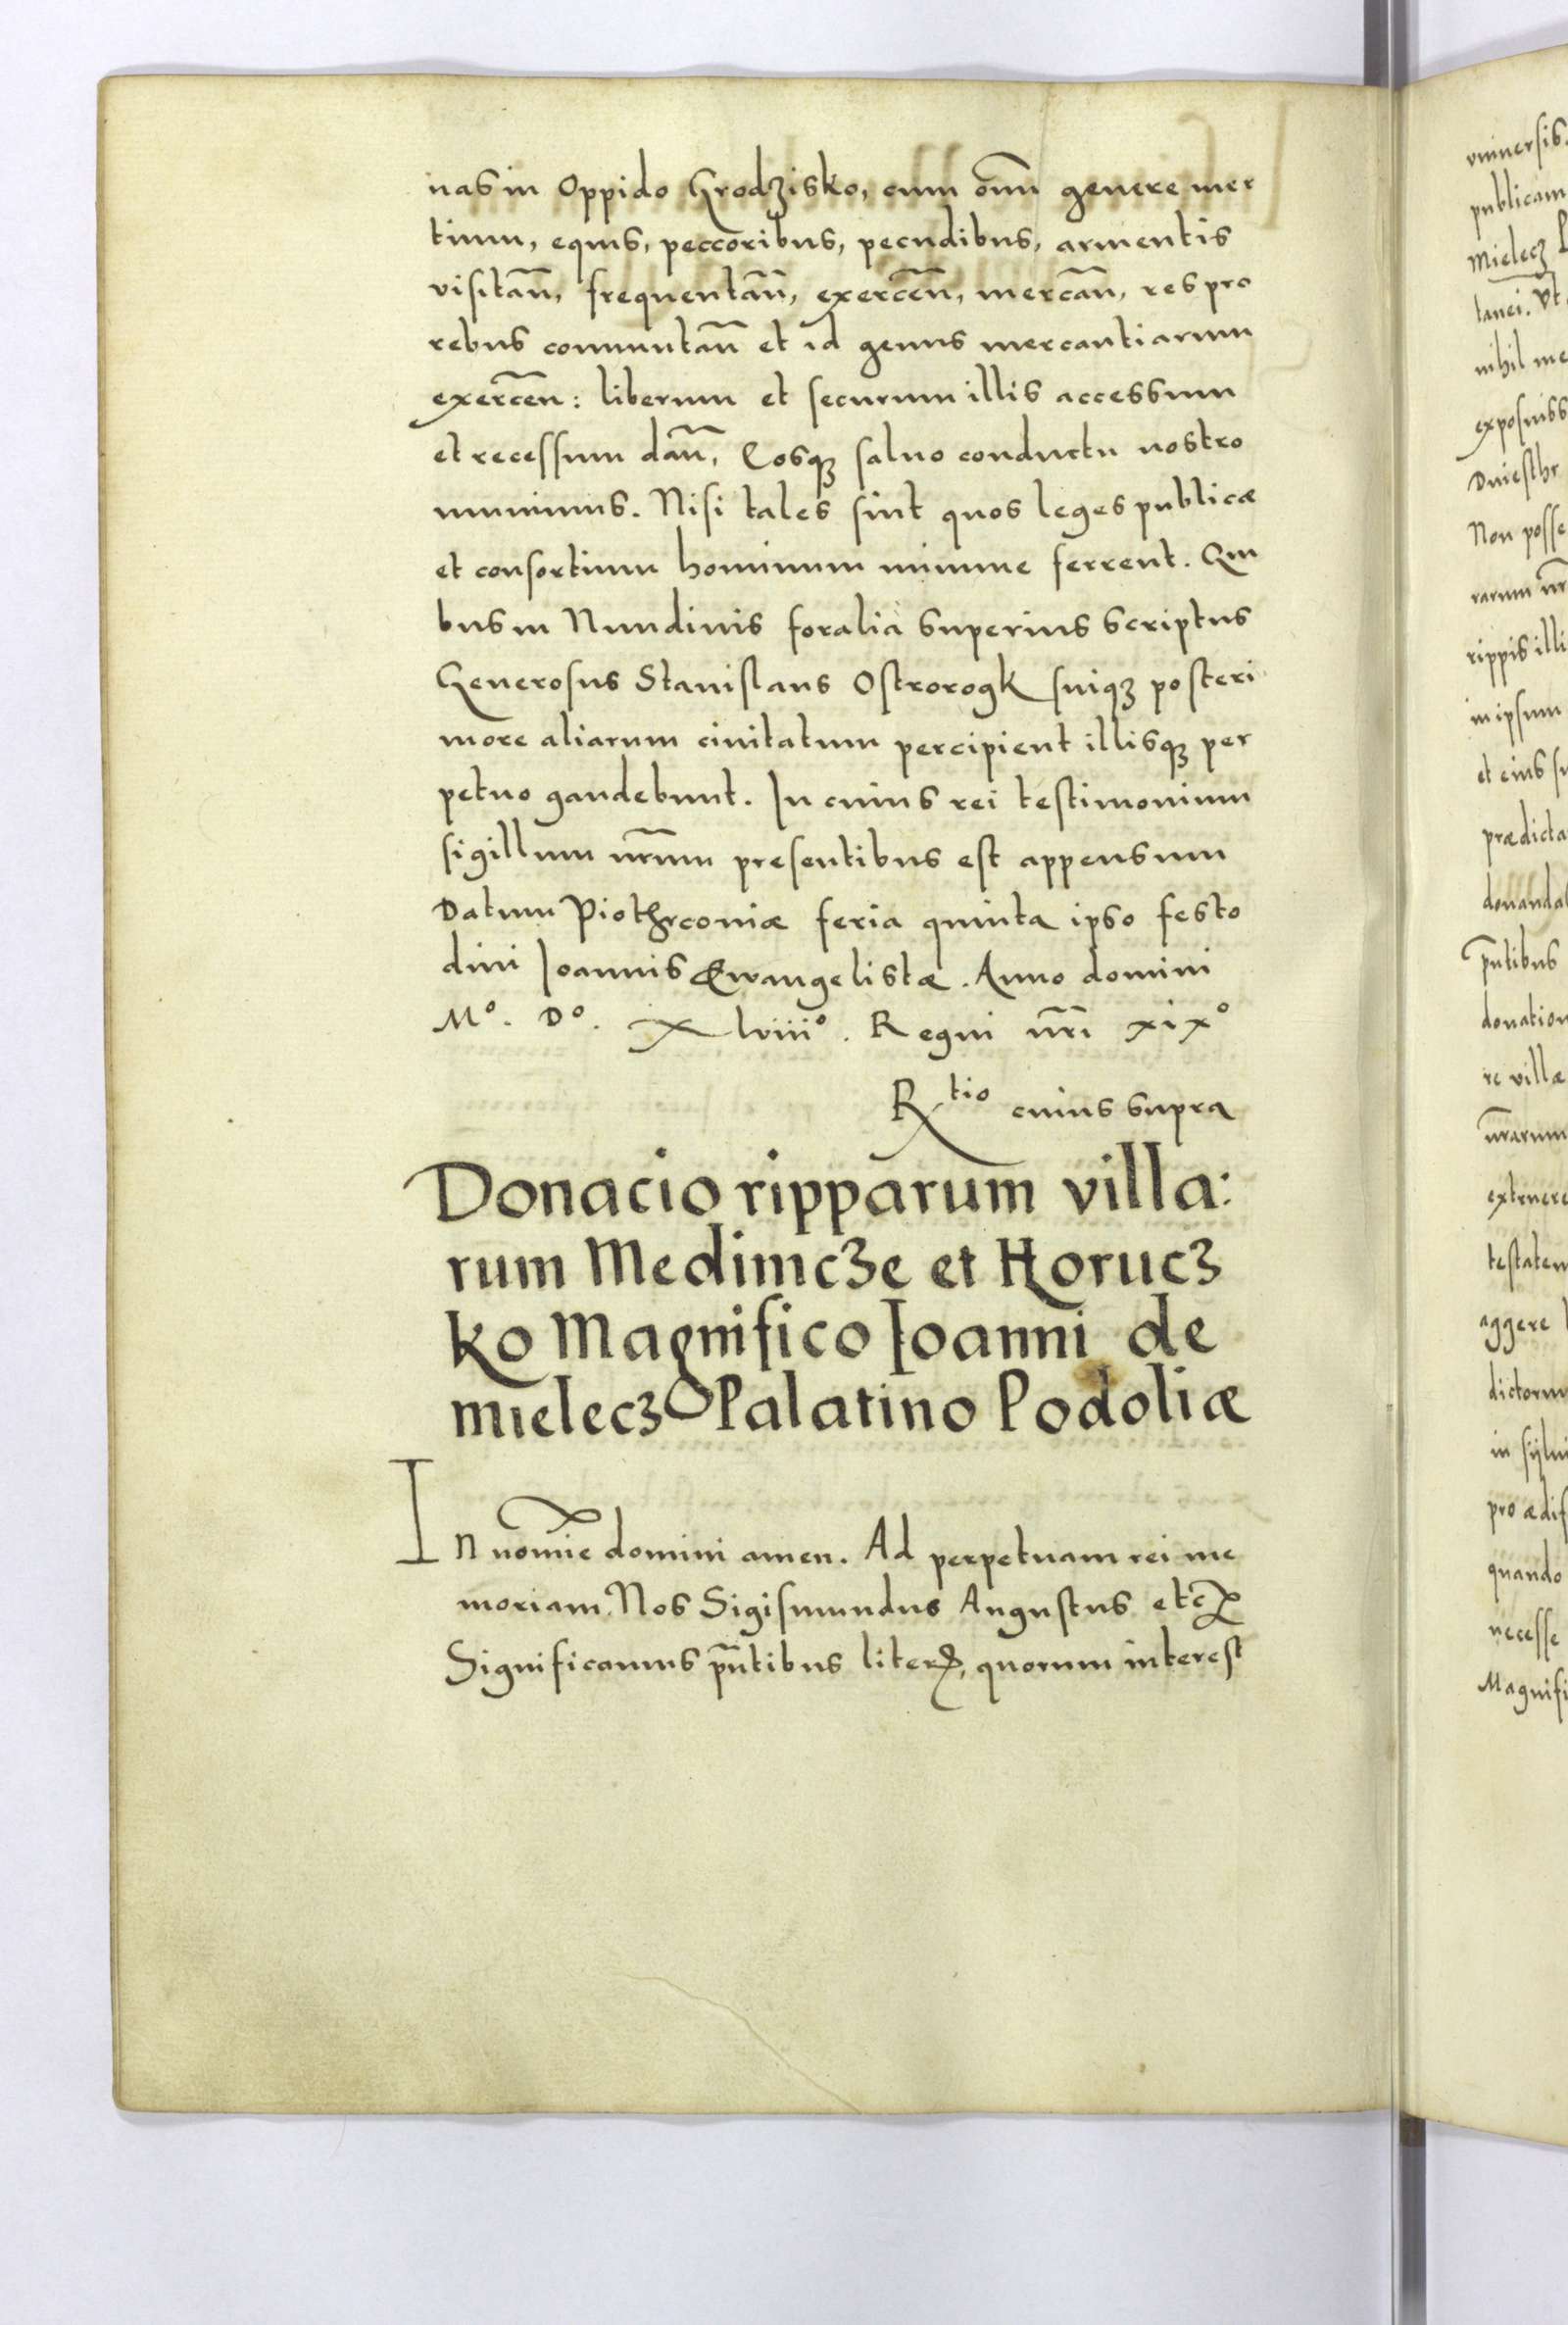 nas in Oppido Grodzisko, cum om̄i genere mer
tium, equis, peccoribus, pecudibus, armentis
visitan̄, frequentan̄, exercen̄, mercan̄, res pro
rebus commutan̄ et id genus mercantiarum
exercen̄: liberum et securum illis accessum
et recessum dan̄, Eosqꝫ saluo conductu nostro
munimus. Nisi tales sint quos leges publicæ
et consortium hominum minime ferrent. Qui
bus in Nundinis foralia superius scriptus
Generosus Stanislaus Ostrorogk suiqꝫ posteri
more aliarum ciuitatum percipient illisqꝫ per
petuo gaudebunt. In cuius rei testimonium
sigillum nr̄um presentibus est appensum
Datum Piothrconiæ feria quinta ipso festo
diui Ioannis Ewangelistæ. Anno domini
Mº. Dº. Xlviiiº. Regni nr̄i xixº
Rtio cuius supra
Donacio ripparum villa:
rum Medinicʒe et Horucʒ
ko Magnifico Ioanni de
mielecʒ Palatino Podoliæ
In nomīe domini amen. Ad perpetuam rei me
moriam. Nos Sigismundus Augustus etc̄
Significamus pn̄tibus literꝭ, quorum interest
vniuersis
publicam
Mielecʒ
tanei. Vt
nihil me
exposuiss
Dniesthr
Non posse
rarum nr̄
rippis illi
in ipsum
et eius su
prædicta
donanda
pn̄tibus
donation
re villæ
nr̄arum
extruere
testatem
aggere
dictorum
in syluis
pro ædif
quando
necesse
Magnifi